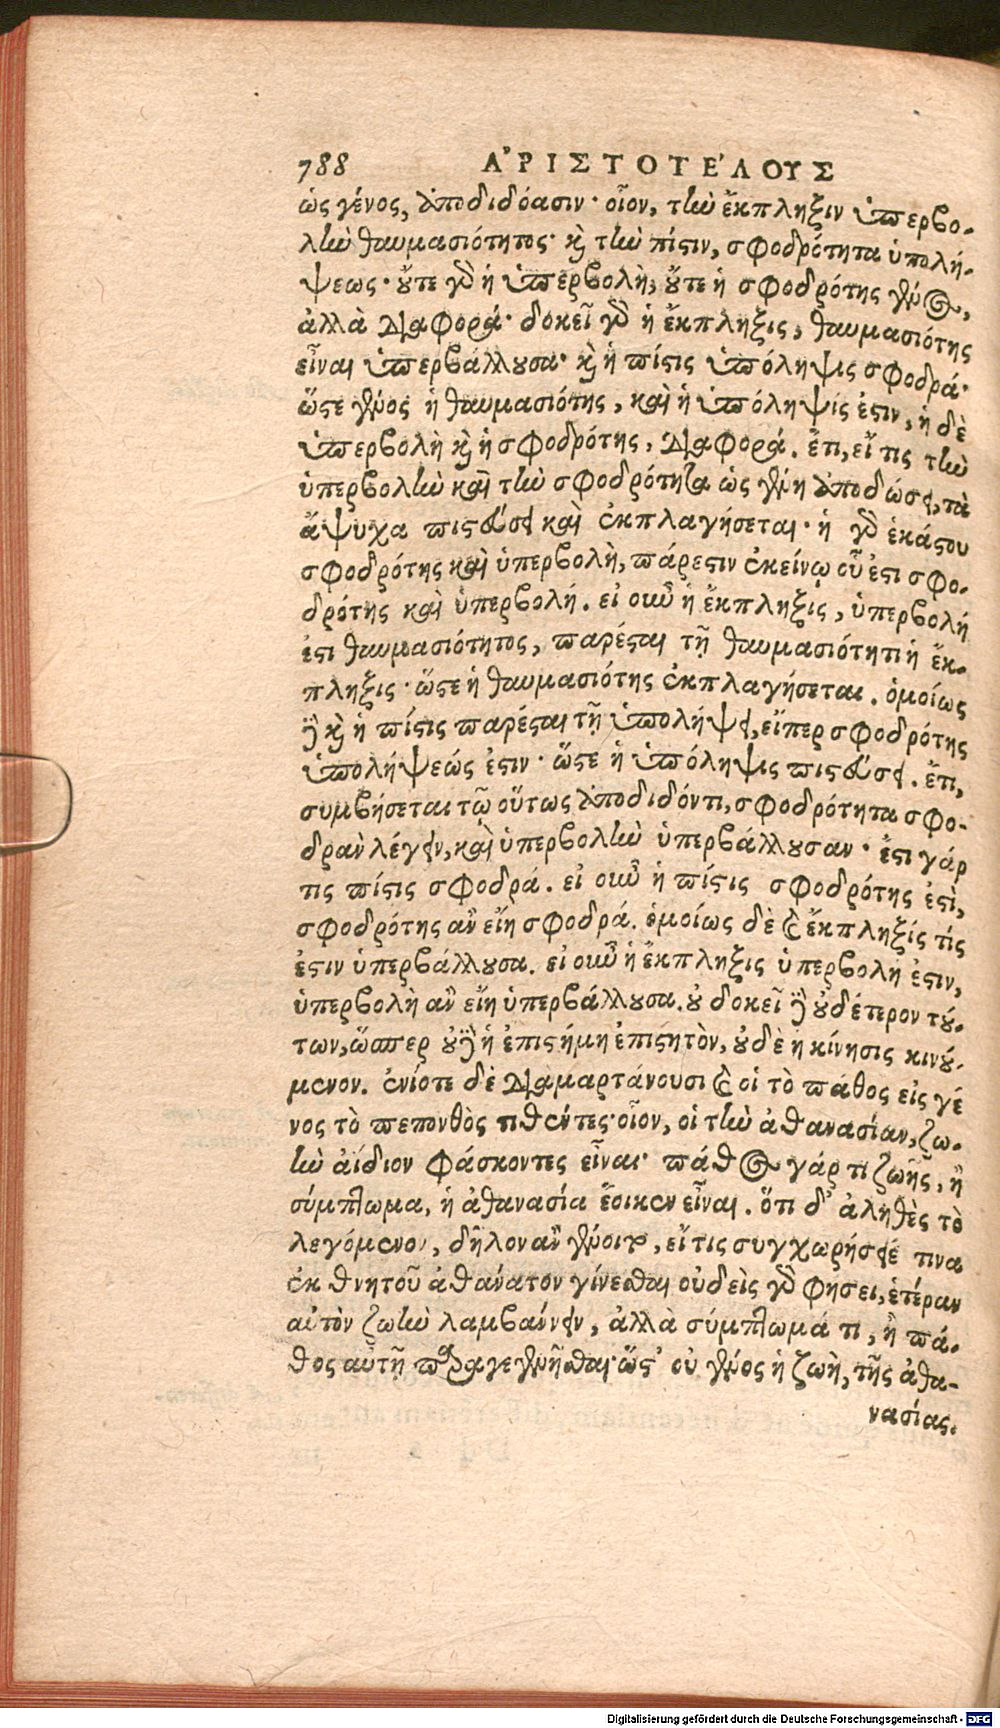 788 ΑʼΡΙΣΤΟΤΕʹΛΟΥΣ
ὡς γένος, ἀποδιδόασιν· οἷον, τὴν ἔκπληξιν ὑπερβο-
λὴν θαυμασιότητος· καὶ τὴν πίστιν, σφοδρότητα ὑπολή-
ψεως· οὔτε γὰρ ἡ ὑπερβολὴ, οὔτε ἡ σφοδρότης γένος,
ἀλλὰ διαφορά· δοκεῖ γὰρ ἡ ἔκπληξις, θαυμασιότης
εἶναι ὑπερβάλλουσα· καὶ ἡ πίστις ὑπόληψις σφοδρά·
ὥστε γένος ἡ θαυμασιότης, καὶ ἡ ὑπόληψίς ἐστιν, ἡ δὲ
ὑπερβολὴ καὶ ἡ σφοδρότης, διαφορά. ἔτι, εἴ τις τὴν
ὑπερβολὴν καὶ τὴν σφοδρότητα ὡς γένη ἀποδώσει, τὰ
ἄψυχα πιστεύσει καὶ ἐκπλαγήσεται· ἡ γὰρ ἑκάστου
σφοδρότης καὶ ὑπερβολὴ, πάρεστιν ἐκείνῳ οὗ ἐστι σφο-
δρότης καὶ ὑπερβολή. εἰ οὖν ἡ ἔκπληξις, ὑπερβολή
ἐστι θαυμασιότητος, παρέσται τῇ θαυμασιότητι ἡ ἔκ-
πληξις· ὥστε ἡ θαυμασιότης ἐκπλαγήσεται. ὁμοίως
δὲ καὶ ἡ πίστις παρέσται τῇ ὑπολήψει, εἴπερ σφοδρότης
ὑπολήψεώς ἐστιν· ὥστε ἡ ὑπόληψις πιστεύσει. ἔτι,
συμβήσεται τῷ οὕτως ἀποδιδόντι, σφοδρότητα σφο-
δρὰν λέγειν, καὶ ὑπερβολὴν ὑπερβάλλουσαν· ἔστι γάρ
τις πίστις σφοδρά. εἰ οὖν ἡ πίστις σφοδρότης ἐστὶ,
σφοδρότης ἂν εἴη σφοδρά. ὁμοίως δὲ καὶ ἔκπληξίς τίς
ἐστιν ὑπερβάλλουσα. εἰ οὖν ἡ ἔκπληξις ὑπερβολή ἐστιν,
ὑπερβολὴ ἂν εἴη ὑπερβάλλουσα. οὐ δοκεῖ δὲ οὐδέτερον τού-
των, ὥσπερ οὐδὲ ἡ ἐπιστήμη ἐπιστητὸν, οὐδὲ ἡ κίνησις κινού-
μενον. ἐνίοτε δὲ διαμαρτάνουσι καὶ οἱ τὸ πάθος εἰς γέ
νος τὸ πεπονθὸς τιθέντες· οἷον, οἱ τὴν ἀθανασίαν, ζω-
ὴν ἀΐδιον φάσκοντες εἶναι· πάθος γάρ τι ζωῆς, ἢ
σύμπτωμα, ἡ ἀθανασία ἔοικεν εἶναι. ὅτι δ' ἀληθὲς τὸ
λεγόμενον, δῆλον ἂν γένοιτο, εἴ τις συγχωρήσειέ τινα
ἐκ θνητοῦ ἀθάνατον γίνεσθαι οὐδεὶς γὰρ φήσει, ἑτέραν
αὐτὸν ζωὴν λαμβάνειν, ἀλλὰ σύμπτωμά τι, ἢ πά-
θος αὐτῇ παραγεγενῆσθαι· ὥστ' οὐ γένος ἡ ζωὴ, τῆς ἀθα-
νασίας.
Digitalisierung gefördert durch die Deutsche Forschungsgemeinschaft - DFG